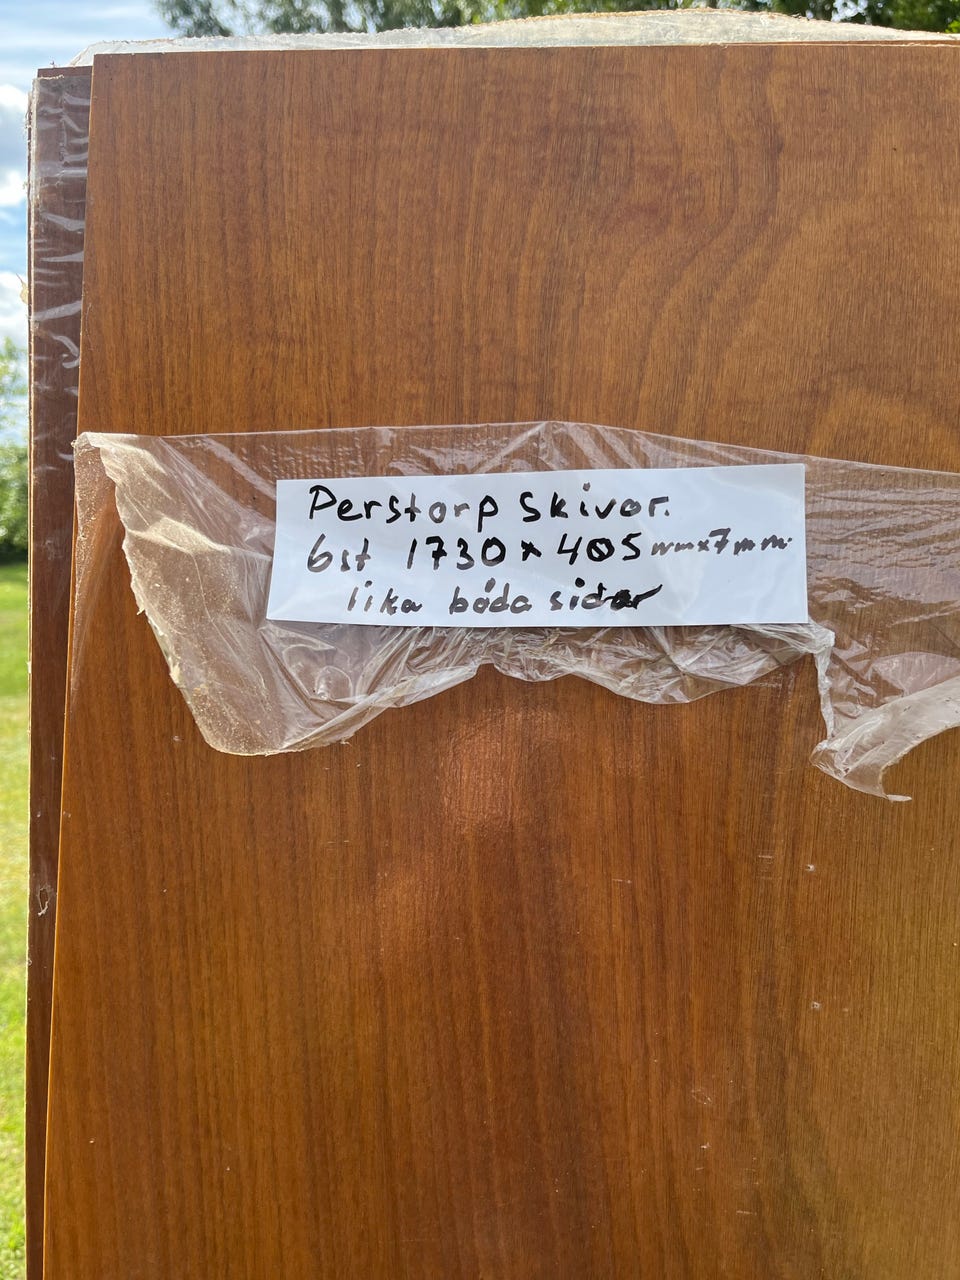 Perstorp skivor.
6st 1730 x 405 mm x 7 mm.
lika båda sidor